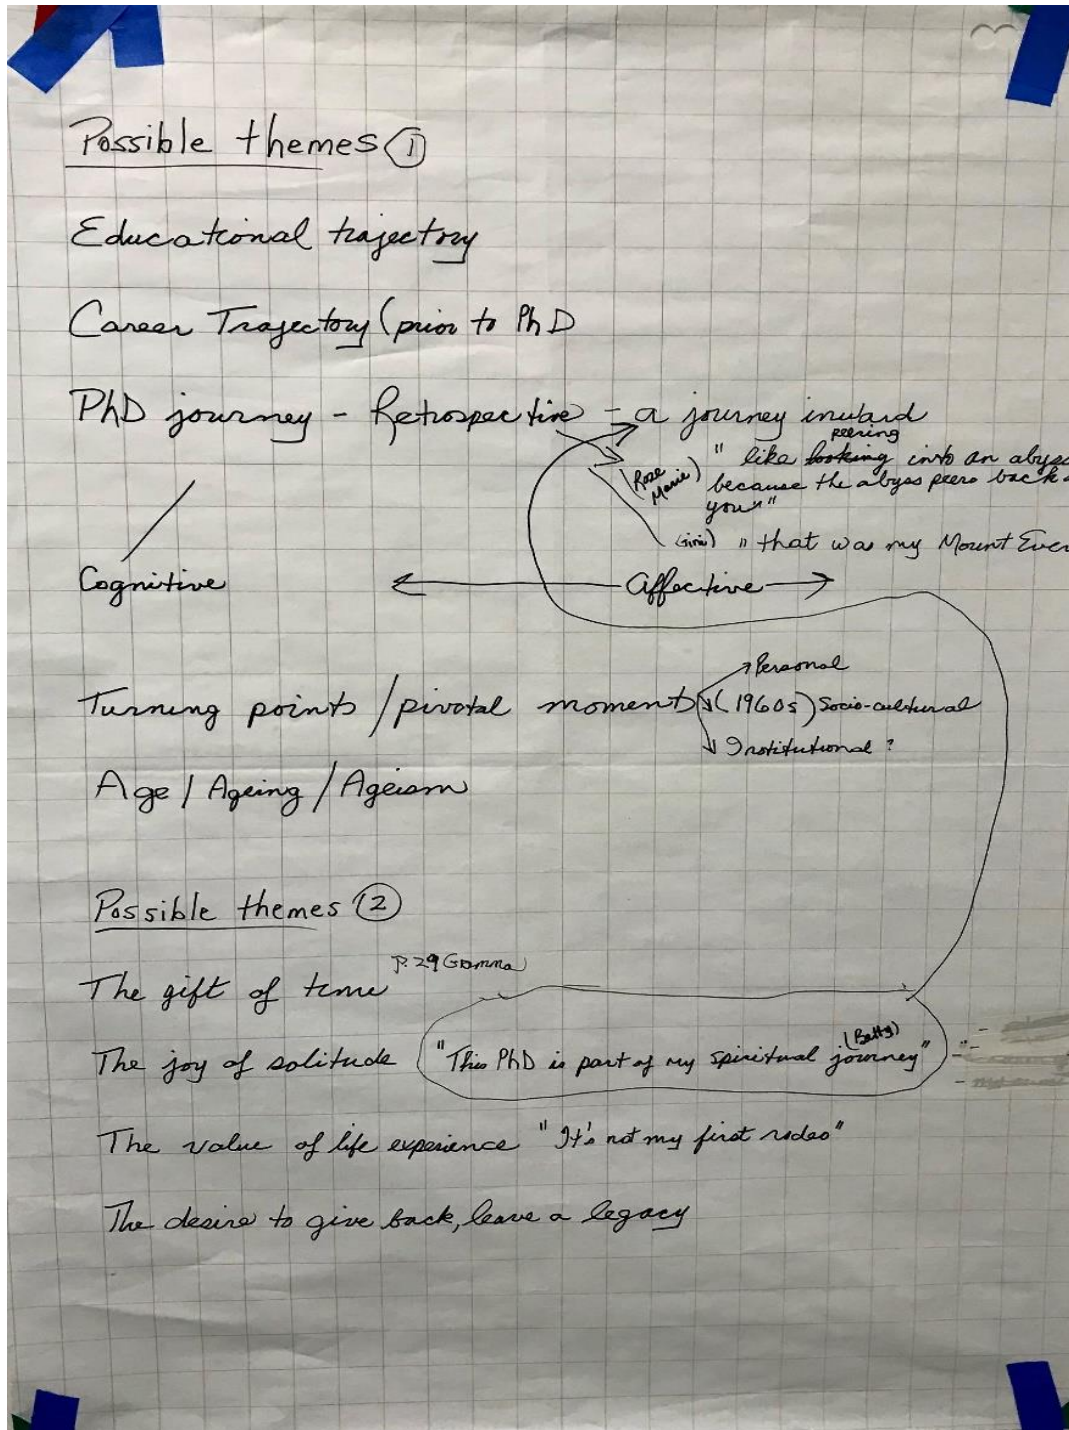 Possible themes 1
Educational trajectory
Career Trajectory (prior to PhD
PhD journey - Retrospective - a journey inward
peering
(Rose Marie) "like looking into an abyss
because the abyss peers back
you""
"that was my Mount Ever
Cognitive Affective
Personal
Turning points / pivotal moments (1960s) Socio-cultural
Institutional?
Age / Ageing / Ageism
Possible themes 2
p. 29
The gift of time
(Betty)
The joy of solitude "This PhD is part of my spiritual journey"
The value of life experience "It's not my first rodeo"
The desire to give back, leave a legacy